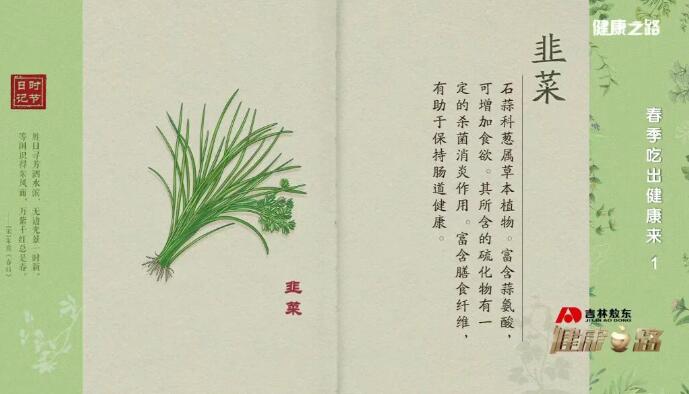 健康之路
春季吃出健康来 1
韭菜
石蒜科葱属草本植物。富含蒜氨酸，
可增加食欲。其所含的硫化物有一
定的杀菌消炎作用。富含膳食纤维，
有助于保持肠道健康。
韭菜
时节
日记
胜日寻芳泗水滨，无边光景一时新。
等闲识得东风面，万紫千红总是春。
——[宋]朱熹《春日》
吉林敖东
JILIN AO DONG
健康之路